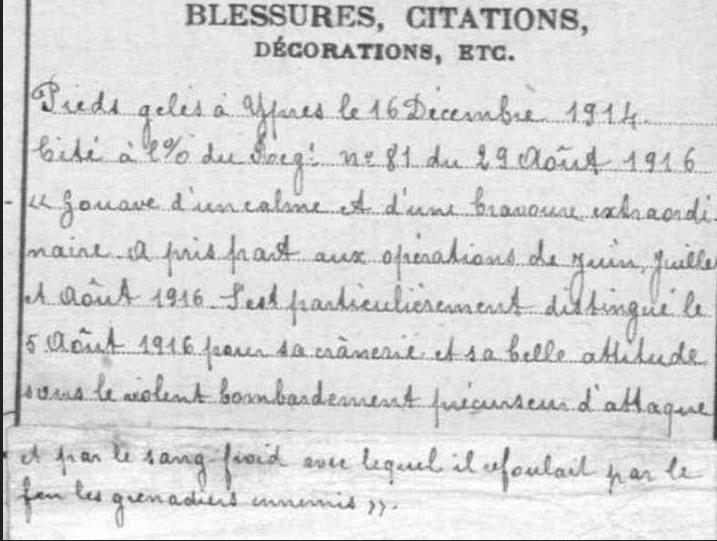 BLESSURES, CITATIONS,
DÉCORATIONS, ETC.
Pieds gelés à Ypres le 16 Décembre 1914.
Cité à l'% du Regt nº 81 du 29 Août 1916
« Zouave d'un calme et d'une bravoure extraordi
naire. A pris part aux opérations de Juin, Juillet
et Août 1916. S'est particulièrement distingué le
5 Août 1916 pour sa crânerie et sa belle attitude
sous le violent bombardement précurseur d'attaque
et par le sang-froid avec lequel il refoulait par le
feu les grenadiers ennemis ».